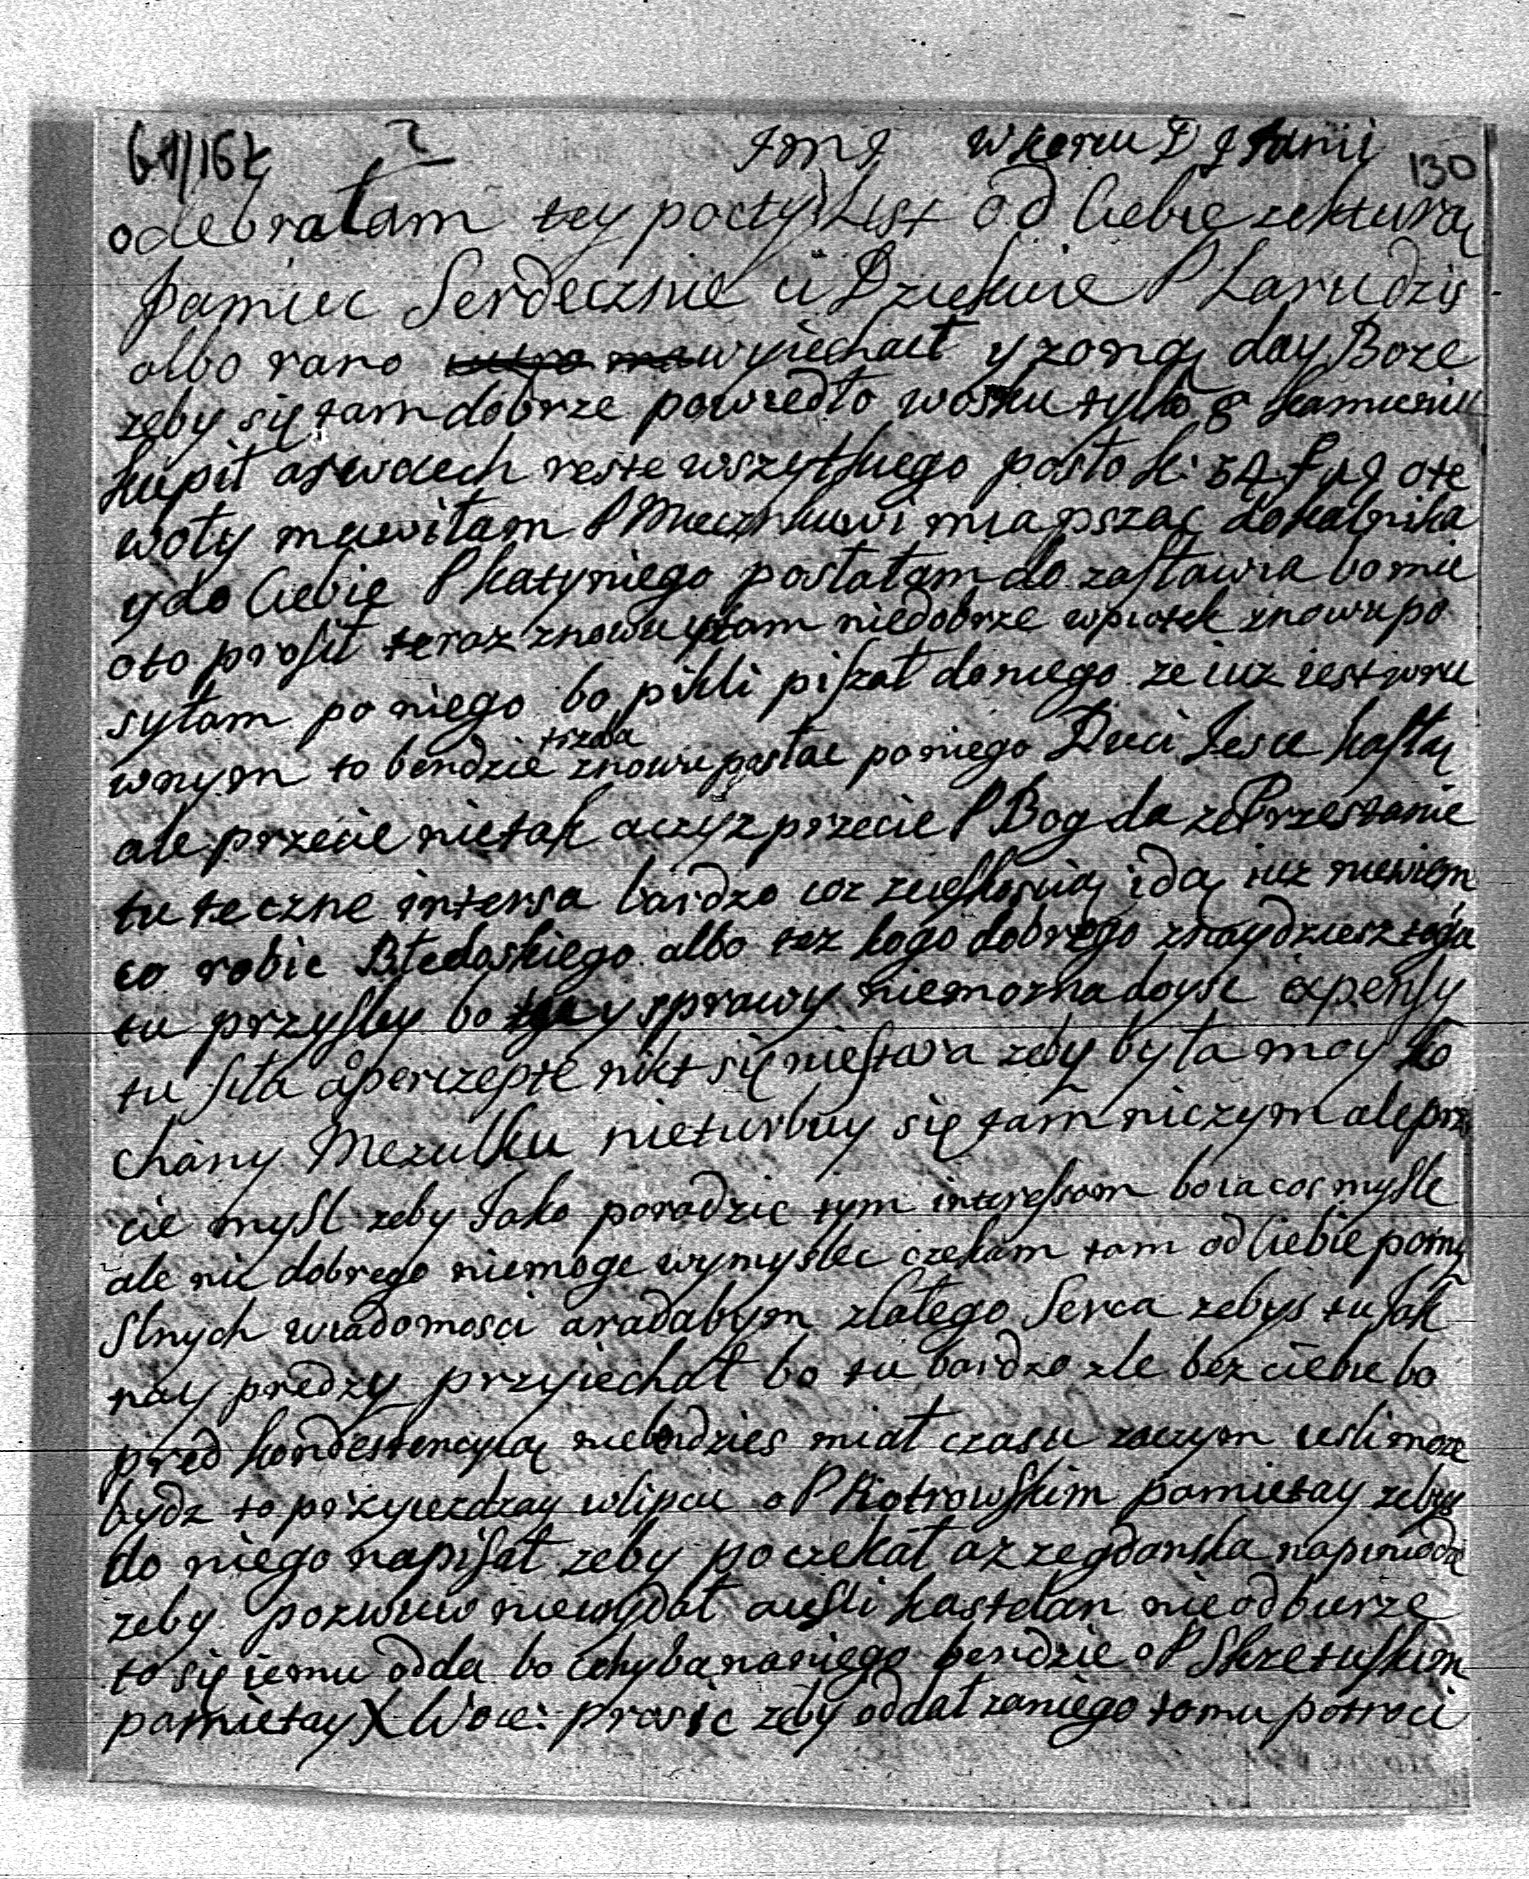 130
odebrałam tey poczty List od Ciebie zekturą
pamiec Serdecznie ci Dziekuie P Zarudzis
albo rano wyiechał y zoną day Boze
zeby się tam dobrze powiedło wosku tylko 8 kamieniu
kupił reste wszytkiego posło
woły muwiłam P do
ydo Ciebie P posłałam do zasławia bo mie
oto prosił teraz znowu tam niedobrze wpiotek znowu po
syłam po niego bo pikli pisał doniego ze iuz iest
wnym to bendzie trzeba znowu posłac poniego Dzieci Iesce kaszlą
ale przecie nietak aczyz przecie P Bog da ze Przestanie
tuteczne intersa bardzo coz zcięskoscią idą iuz niewiem
co robic Błedoskiego albo tez kogo dobrego znaydziesz
tu przysley bo y sprawy niemozna doysc expensy
tu siła a perczepte nikt się niestara zeby była moy ko
chany Mezulku nieturbuy się tam niczym ale prze
cie mysl zeby Iako poradzic tym interessom bo ia cos mysle
ale nic dobrego niemoge wymyslec czekam tam od Ciebie pomy
slnych wiadomosci aradabym zcałego Serca zebys tu Iak
nay predzy przyiechał bo tu bardzo zle bez ciebie bo
pred kondestencyią niebendzies miał czasu zaczym iesli moze
bydz to przyiezdzay wlipcu o P Piotrowskim pamietay zebys
do niego napisał zeby poczekał az zegdanska
zeby pozwuw niewydał aiesli kastelan nieodbierze
to się iemu odda bo chyba naniego bendzie o P Skrzetuskim
pamietay X Woie: prosic zeby oddał zaniego tomu potroci